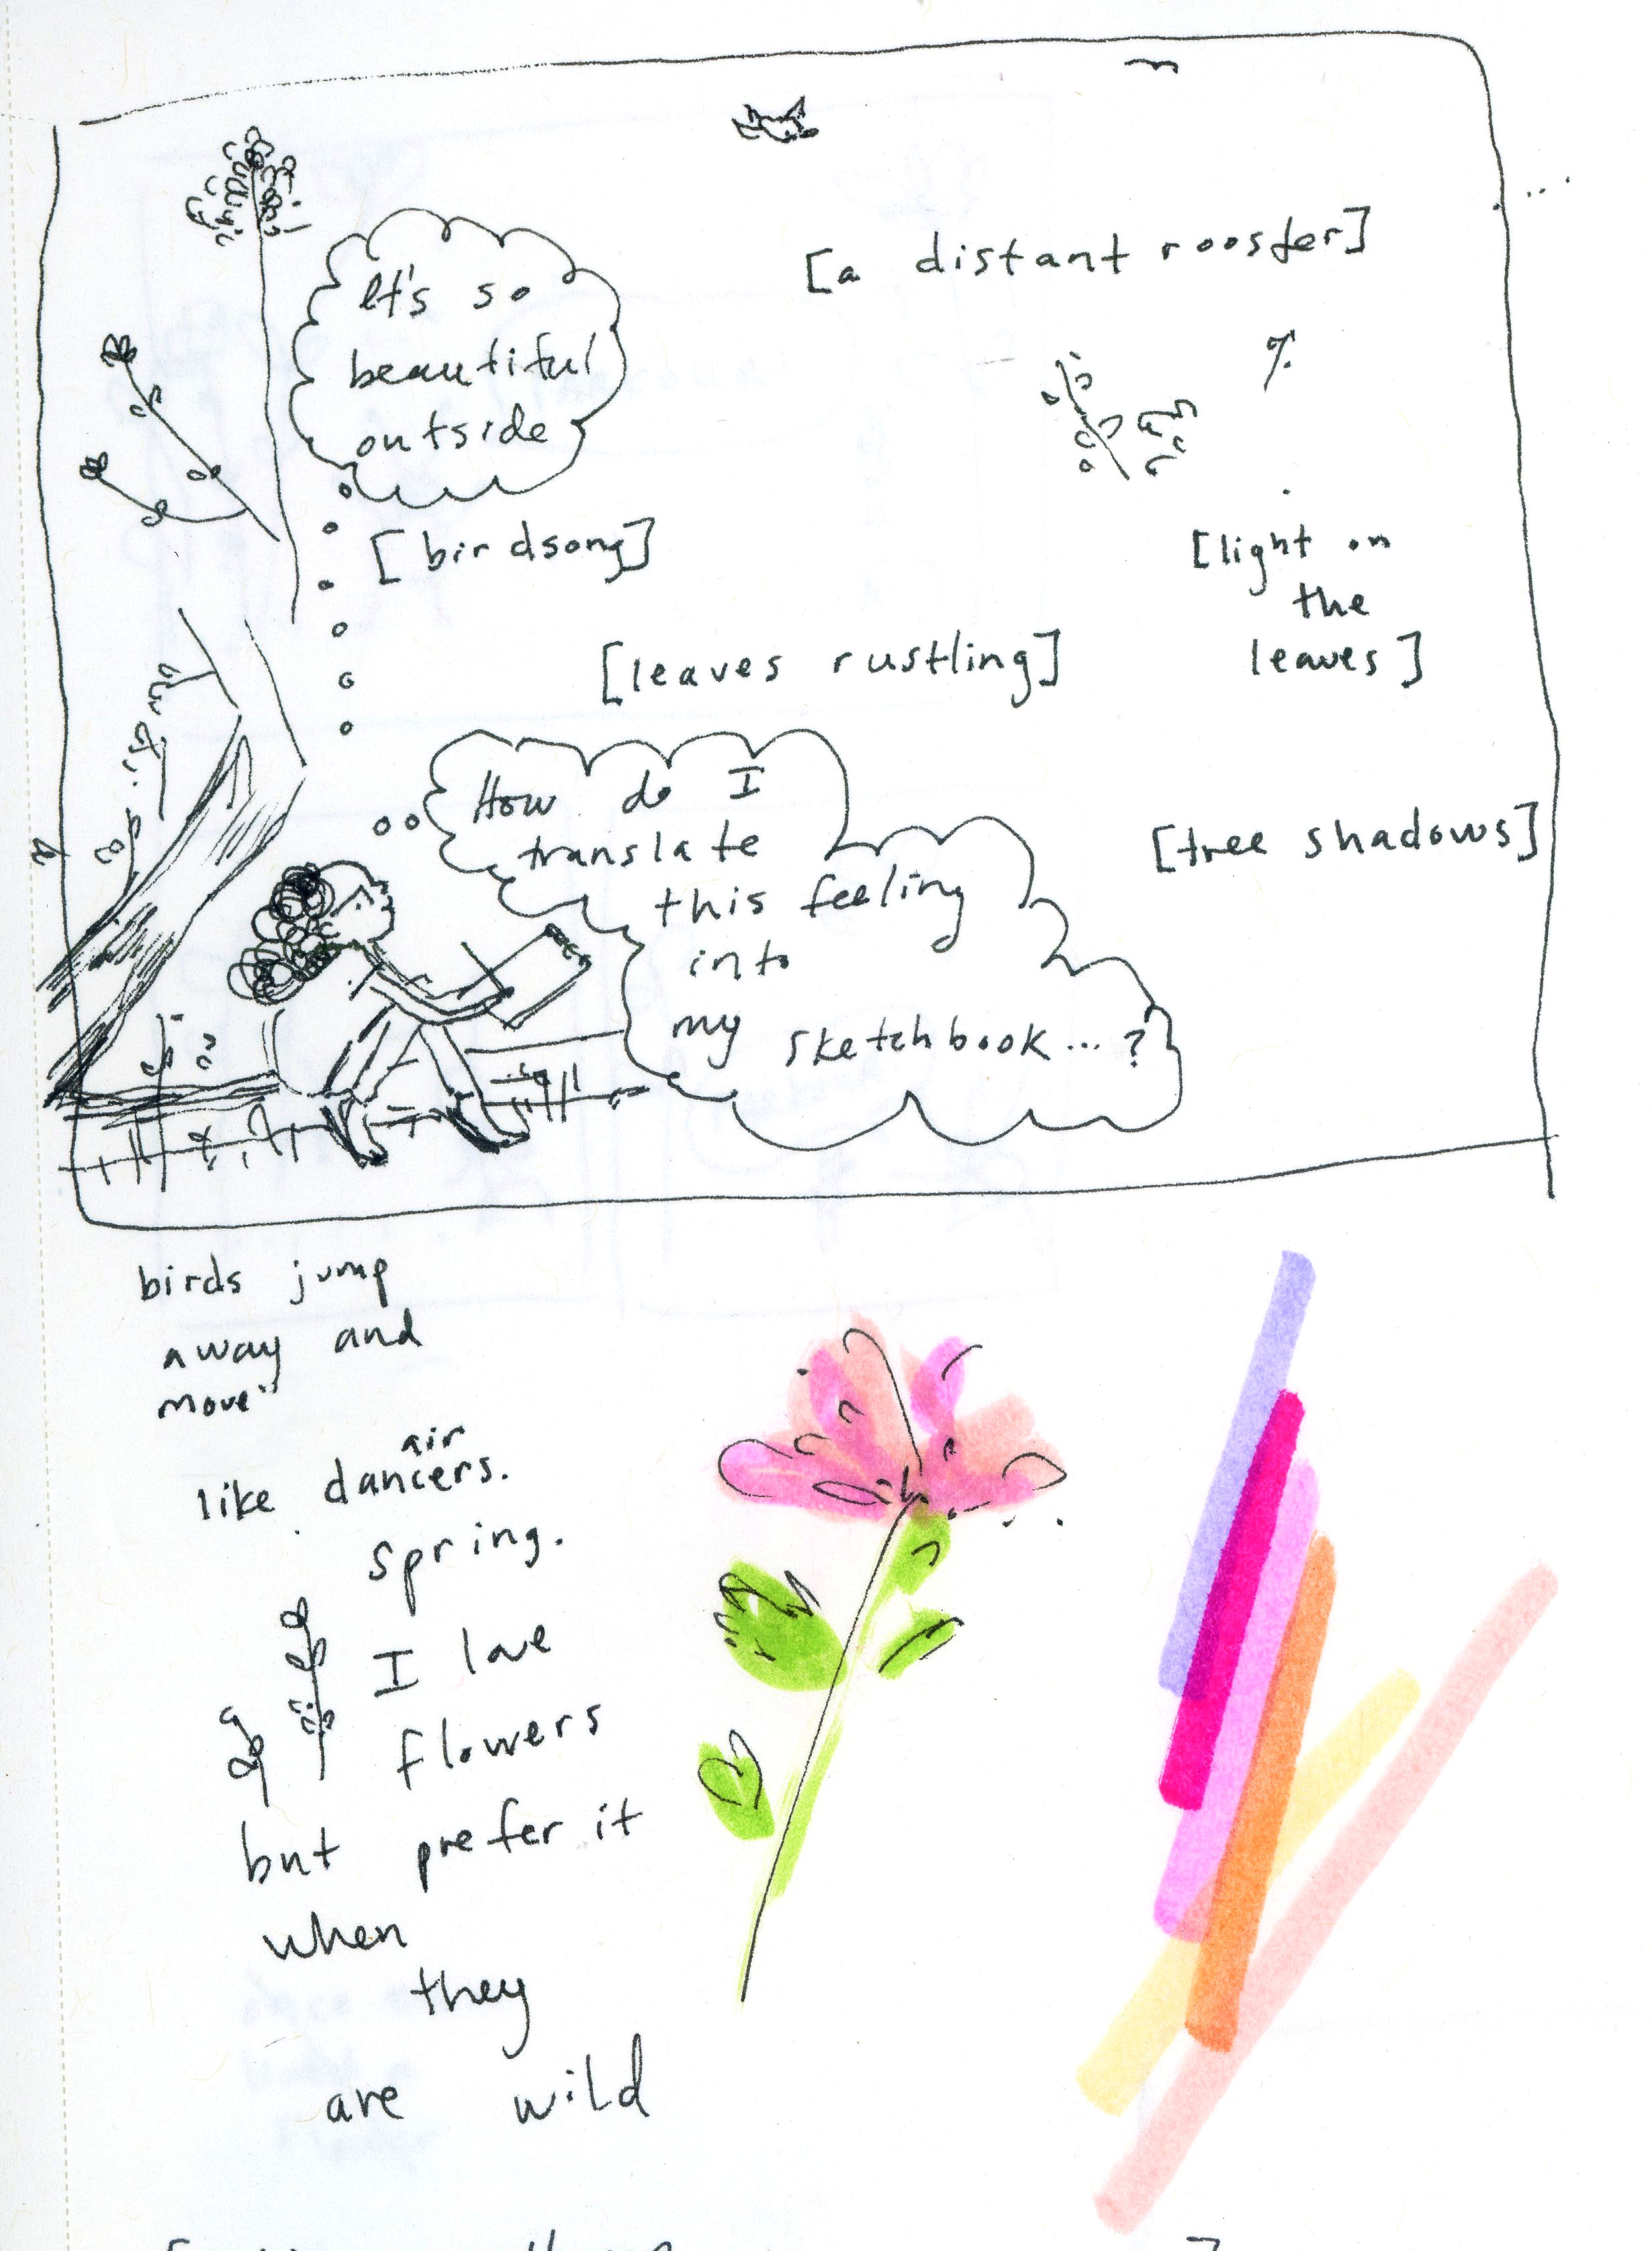 It's so
beautiful
outside
[a distant rooster]
[birdsong]
[light on
the
leaves]
[leaves rustling]
How do I
translate
this feeling
into
my sketchbook...?
[tree shadows]
birds jump
away and
move
air
like dancers.
spring.
I love
flowers
but prefer it
when
they
are wild